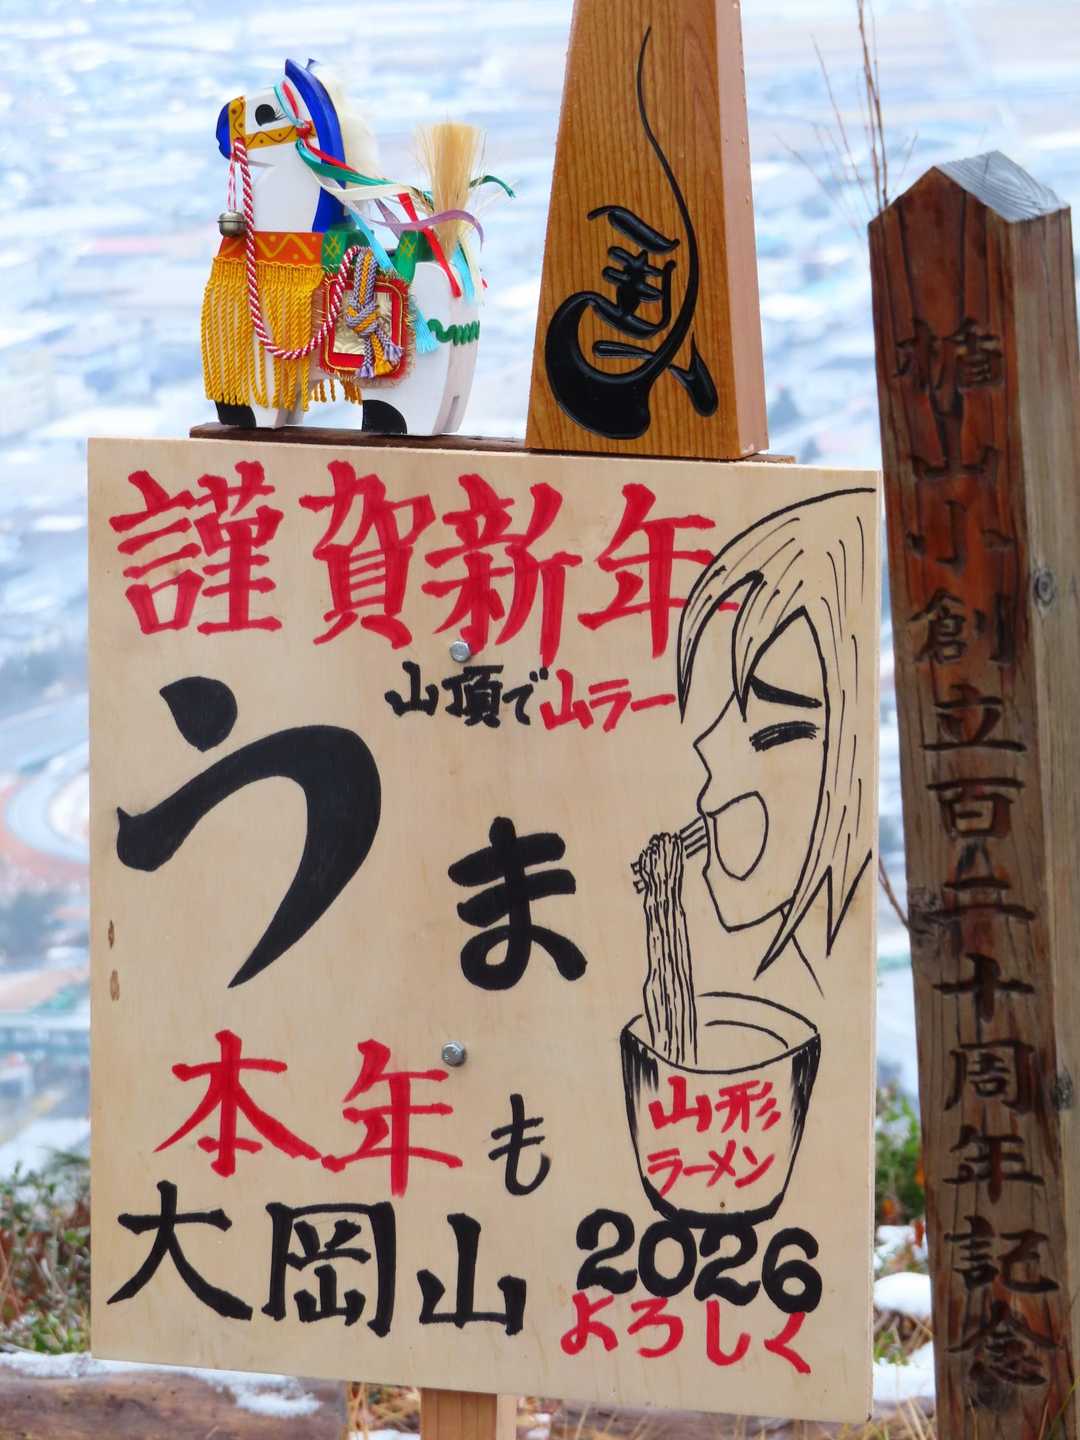 馬
謹賀新年
山頂で山ラー
うま
山形
ラーメン
本年も
大岡山
2026
よろしく
楯山小創立百二十周年記念